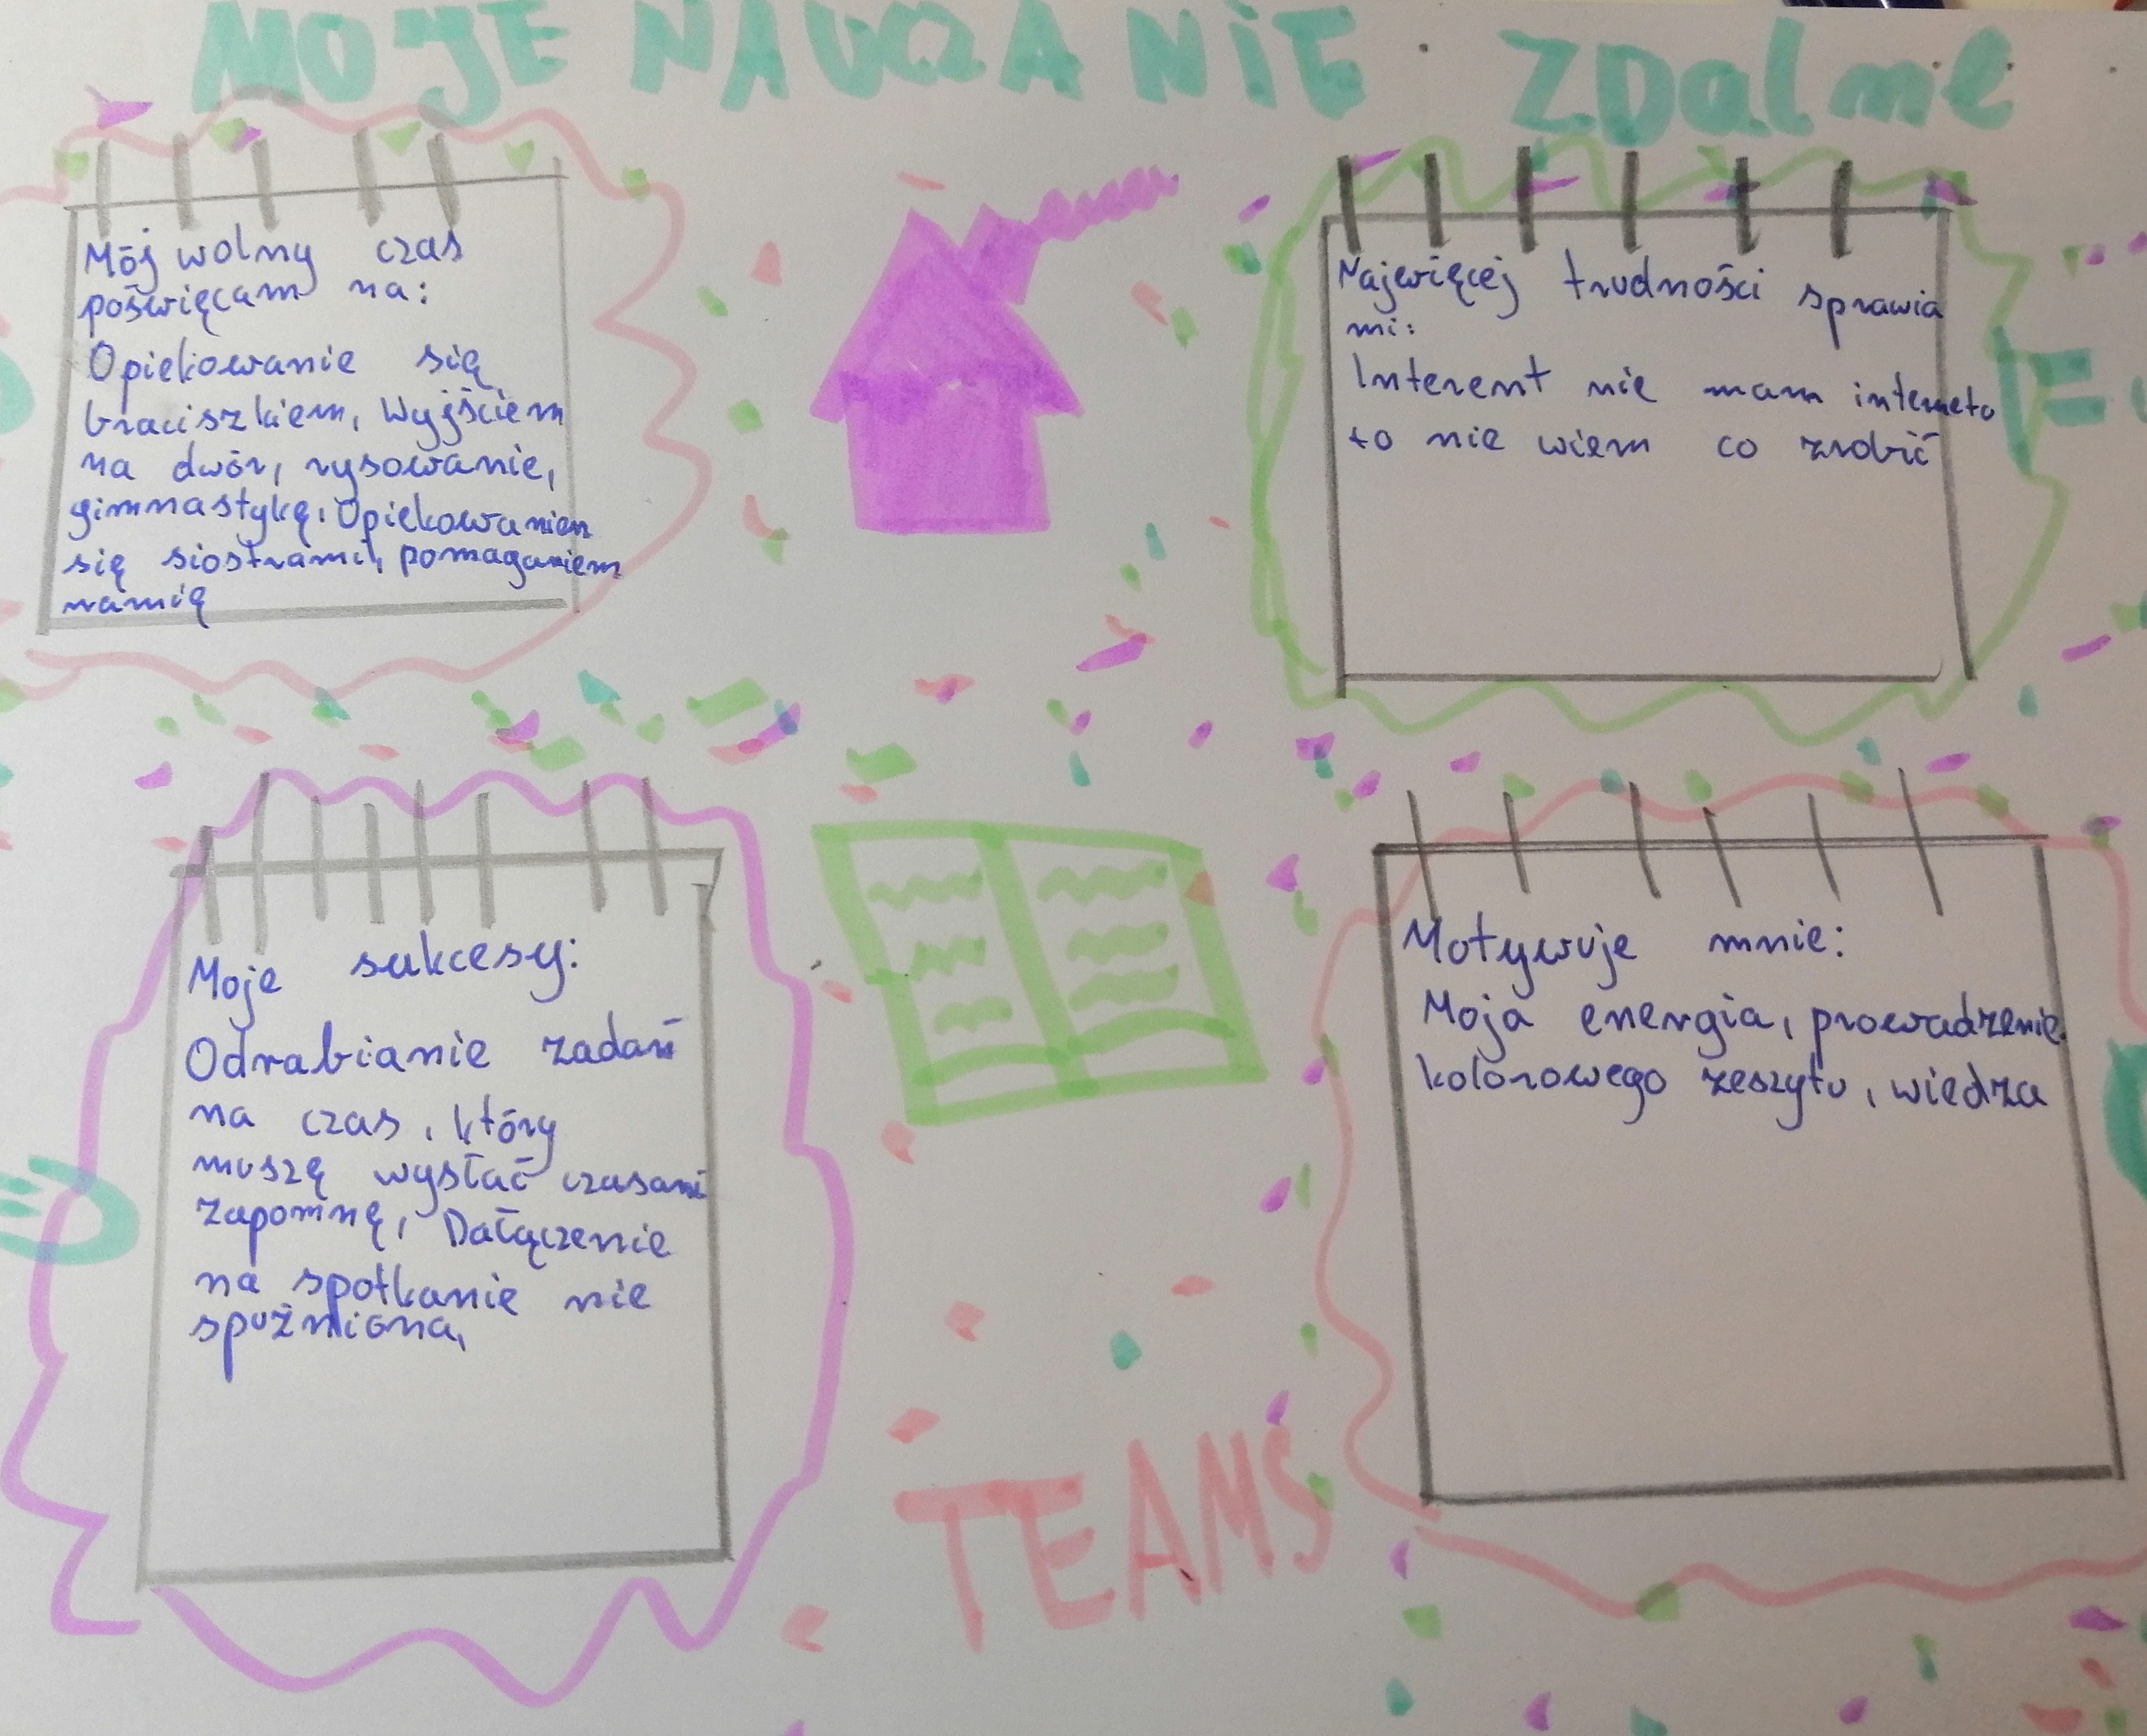 MOJE NAUCZANIE ZDalne
Mój wolny czas
poświęcam na:
Opiekowanie się
braciszkiem, Wyjściem
na dwór, rysowanie,
gimnastykę, Opiekowaniem
się siostrami, pomaganiem
mamią
Najwięcej trudności sprawia
mi:
Interent nie mam interneto
to nie wiem co zrobić
Moje sukcesy:
Odrabianie zadań
na czas, który
muszę wysłać czasami
zapomnę, Dałączenie
na spotkanie nie
spuźniona,
Motywuje mnie:
Moja energia, prowadzenie
kolorowego zeszytu, wiedza
TEAMS